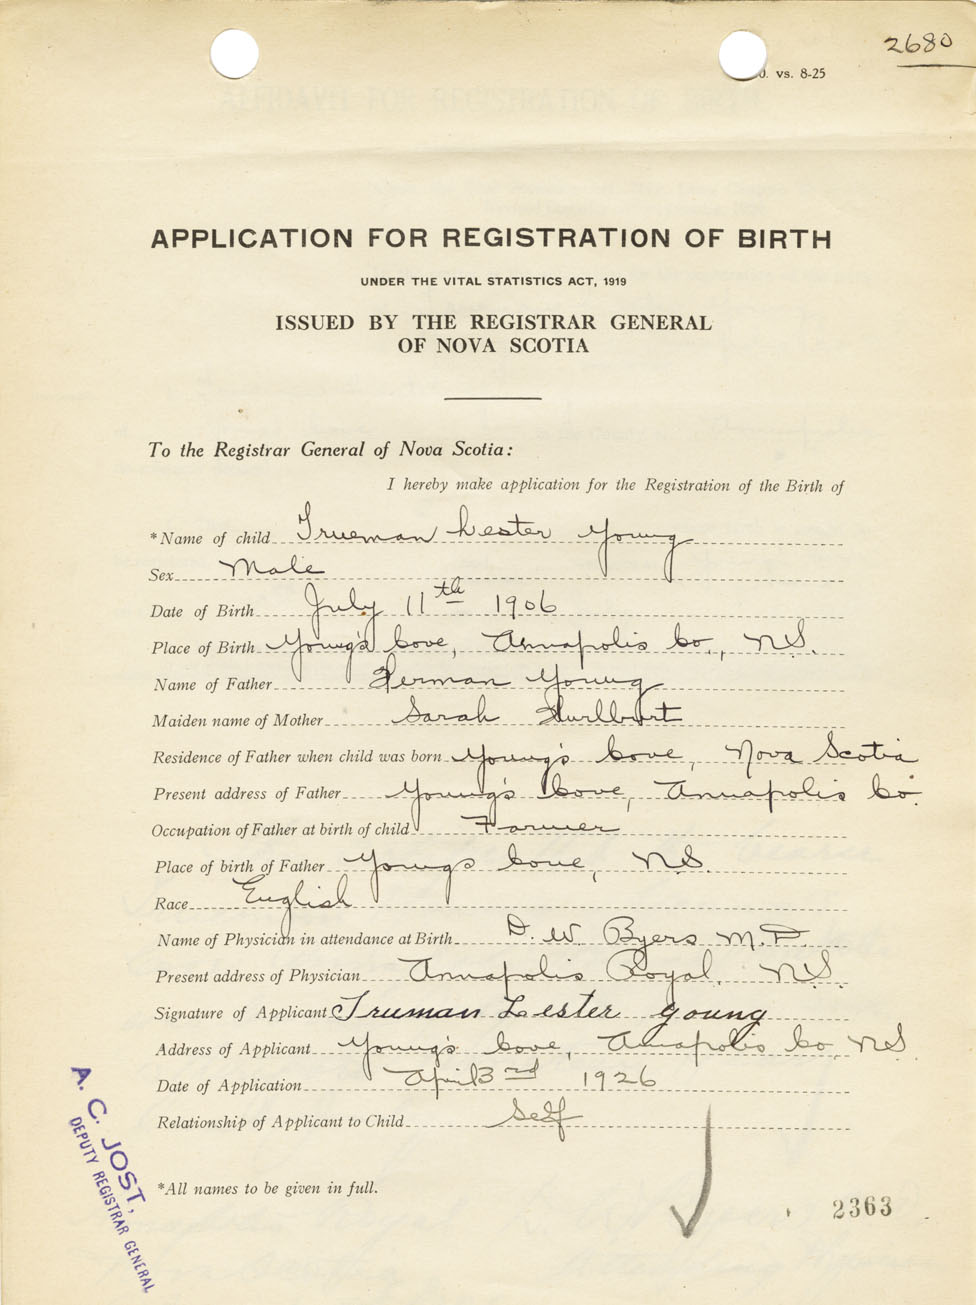 2680
0. vs. 8-25
APPLICATION FOR REGISTRATION OF BIRTH
UNDER THE VITAL STATISTICS ACT, 1919
ISSUED BY THE REGISTRAR GENERAL
OF NOVA SCOTIA
To the Registrar General of Nova Scotia:
I hereby make application for the Registration of the Birth of
*Name of child Trueman Lester Young
Sex Male
Date of Birth July 11th 1906
Place of Birth Young's Cove, Annapolis Co., N.S.
Name of Father Herman Young
Maiden name of Mother Sarah Hurlburt
Residence of Father when child was born Young's Cove, Nova Scotia
Present address of Father Young's Cove, Annapolis Co.
Occupation of Father at birth of child Farmer
Place of birth of Father Youngs Cove, N.S.
Race English
Name of Physician in attendance at Birth D. W. Byers M.D.
Present address of Physician Annapolis Royal, N.S.
Signature of Applicant Truman Lester young
Address of Applicant Young's Cove, Annapolis Co, N.S
Date of Application April 3rd 1926
Relationship of Applicant to Child Self
*All names to be given in full.
A. C. JOST,
DEPUTY REGISTRAR GENERAL
2363